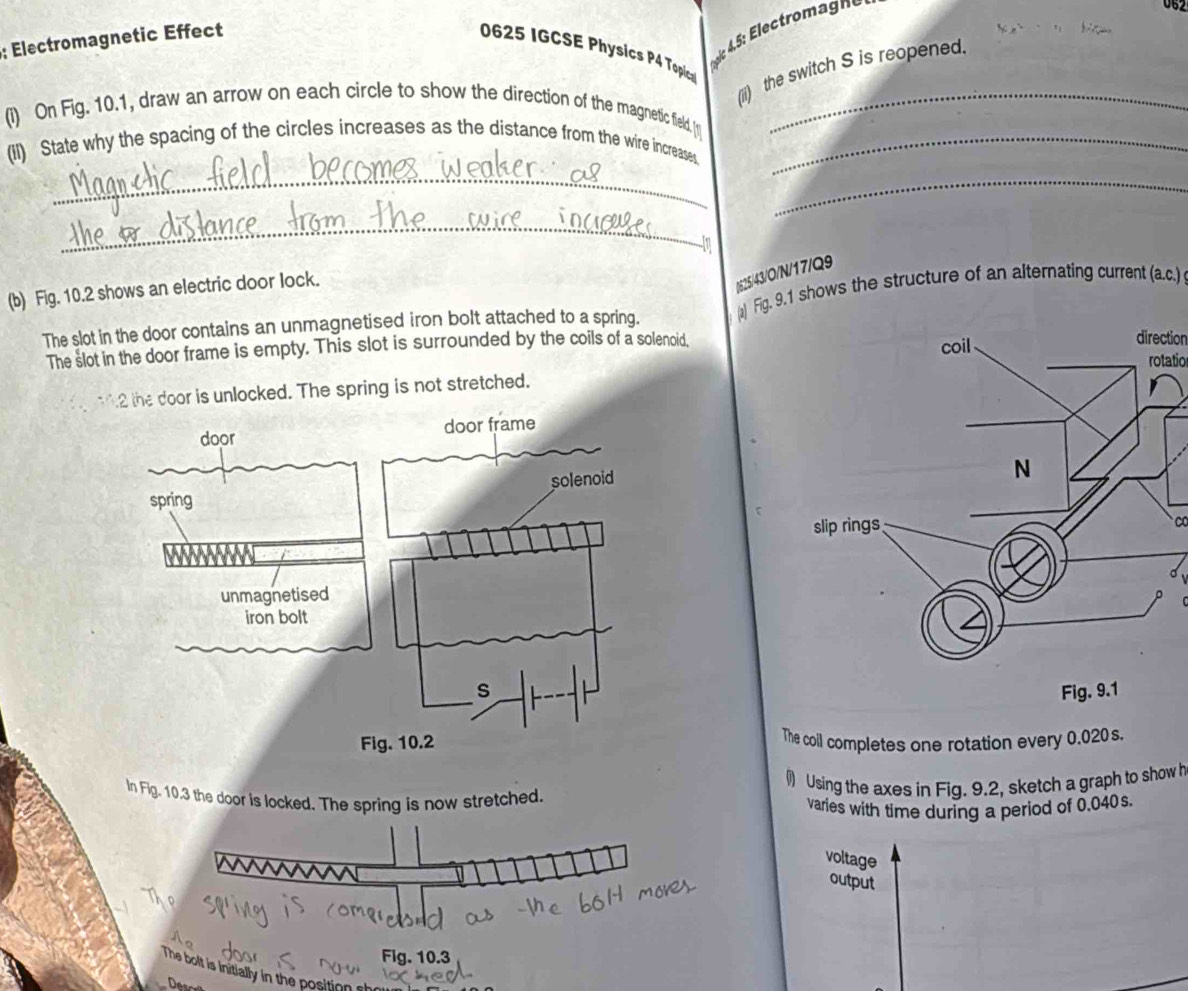 : Electromagnetic Effect
0625 IGCSE Physics P4 Topical
(i) On Fig. 10.1, draw an arrow on each circle to show the direction of the magnetic field. [1]
(ii) State why the spacing of the circles increases as the distance from the wire increases.
Magnetic field becomes weaker as
the distance from the wire increases
[1]
(b) Fig. 10.2 shows an electric door lock.
The slot in the door contains an unmagnetised iron bolt attached to a spring.
The slot in the door frame is empty. This slot is surrounded by the coils of a solenoid.
.2 the door is unlocked. The spring is not stretched.
door
door frame
spring
solenoid
unmagnetised
iron bolt
S
Fig. 10.2
In Fig. 10.3 the door is locked. The spring is now stretched.
The spring is as the bolt moves
door is now locked
Fig. 10.3
The bolt is initially in the position
4.5: Electromagne
062
(ii) the switch S is reopened.
0625/43/O/N/17/Q9
(a) Fig. 9.1 shows the structure of an alternating current (a.c.) g
coil
direction
rotation
N
co
slip rings
Fig. 9.1
The coil completes one rotation every 0.020 s.
(i) Using the axes in Fig. 9.2, sketch a graph to show h
varies with time during a period of 0.040 s.
voltage
output
0